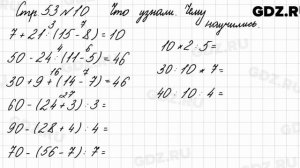 Стр. 53 № 10 Что узнали. Чему научились
GDZ.RU
3 7
7 + 21 : (15 - 8) = 10
4 6
50 - 24 : (11 - 5) = 46
16 7
30 + 9 + (14 - 7) = 46
27
60 - (24 + 3) : 3 =
90 - (28 + 4) : 4 =
70 - (56 - 7) : 7 =
10 × 2 : 5 =
30 : 10 × 7 =
40 : 10 : 4 =
GDZ.RU